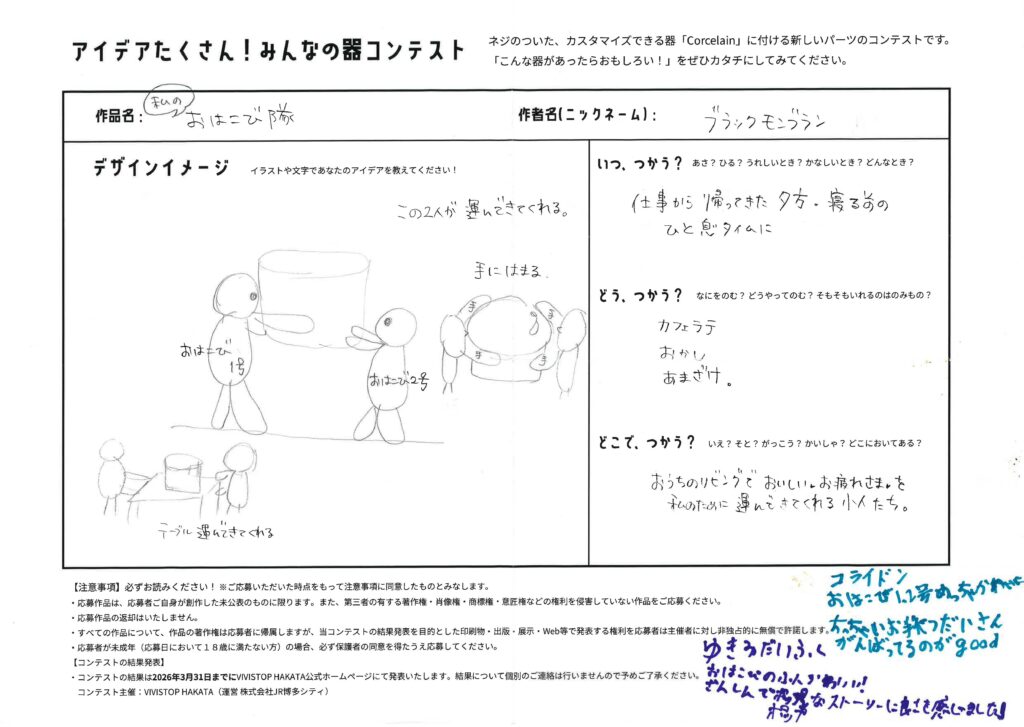 アイデアたくさん！みんなの器コンテスト
ネジのついた、カスタマイズできる器「Corcelain」に付ける新しいパーツのコンテストです。
「こんな器があったらおもしろい！」をぜひカタチにしてみてください。
作品名： 私の おはこび隊
作者名(ニックネーム)： ブラックモンブラン
デザインイメージ イラストや文字であなたのアイデアを教えてください！
この2人が運んできてくれる。
手にはまる。
手
手
手
手
おはこび
1号
おはこび2号
テーブル運んできてくれる
いつ、つかう？ あさ？ひる？うれしいとき？かなしいとき？どんなとき？
仕事から帰ってきた夕方・寝る前の
ひと息タイムに
どう、つかう？ なにをのむ？どうやってのむ？そもそもいれるのはのみもの？
カフェラテ
おかし
あまざけ。
どこで、つかう？ いえ？そと？がっこう？かいしゃ？どこにおいてある？
おうちのリビングでおいしい。お疲れさま。を
私のために運んできてくれる小人たち。
【注意事項】必ずお読みください！※ご応募いただいた時点をもって注意事項に同意したものとみなします。
・応募作品は、応募者ご自身が創作した未公表のものに限ります。また、第三者の有する著作権・肖像権・商標権・意匠権などの権利を侵害していない作品をご応募ください。
・応募作品の返却はいたしません。
・すべての作品について、作品の著作権は応募者に帰属しますが、当コンテストの結果発表を目的とした印刷物・出版・展示・Web等で発表する権利を応募者は主催者に対し非独占的に無償で許諾します。
・応募者が未成年（応募日において１８歳に満たない方）の場合、必ず保護者の同意を得たうえ応募してください。
【コンテストの結果発表】
・コンテストの結果は2026年3月31日までにVIVISTOP HAKATA公式ホームページにて発表いたします。結果について個別のご連絡は行いませんので予めご了承ください。
コンテスト主催：VIVISTOP HAKATA（運営 株式会社JR博多シティ）
コライドン
おはこび1,2号めっちゃかわいい
ちっちゃいお手つだいさん
がんばってるのがgood
ゆきみだいふく
おはこびのふんかわいい！
ざんしんで なストーリーに良さを感じました！